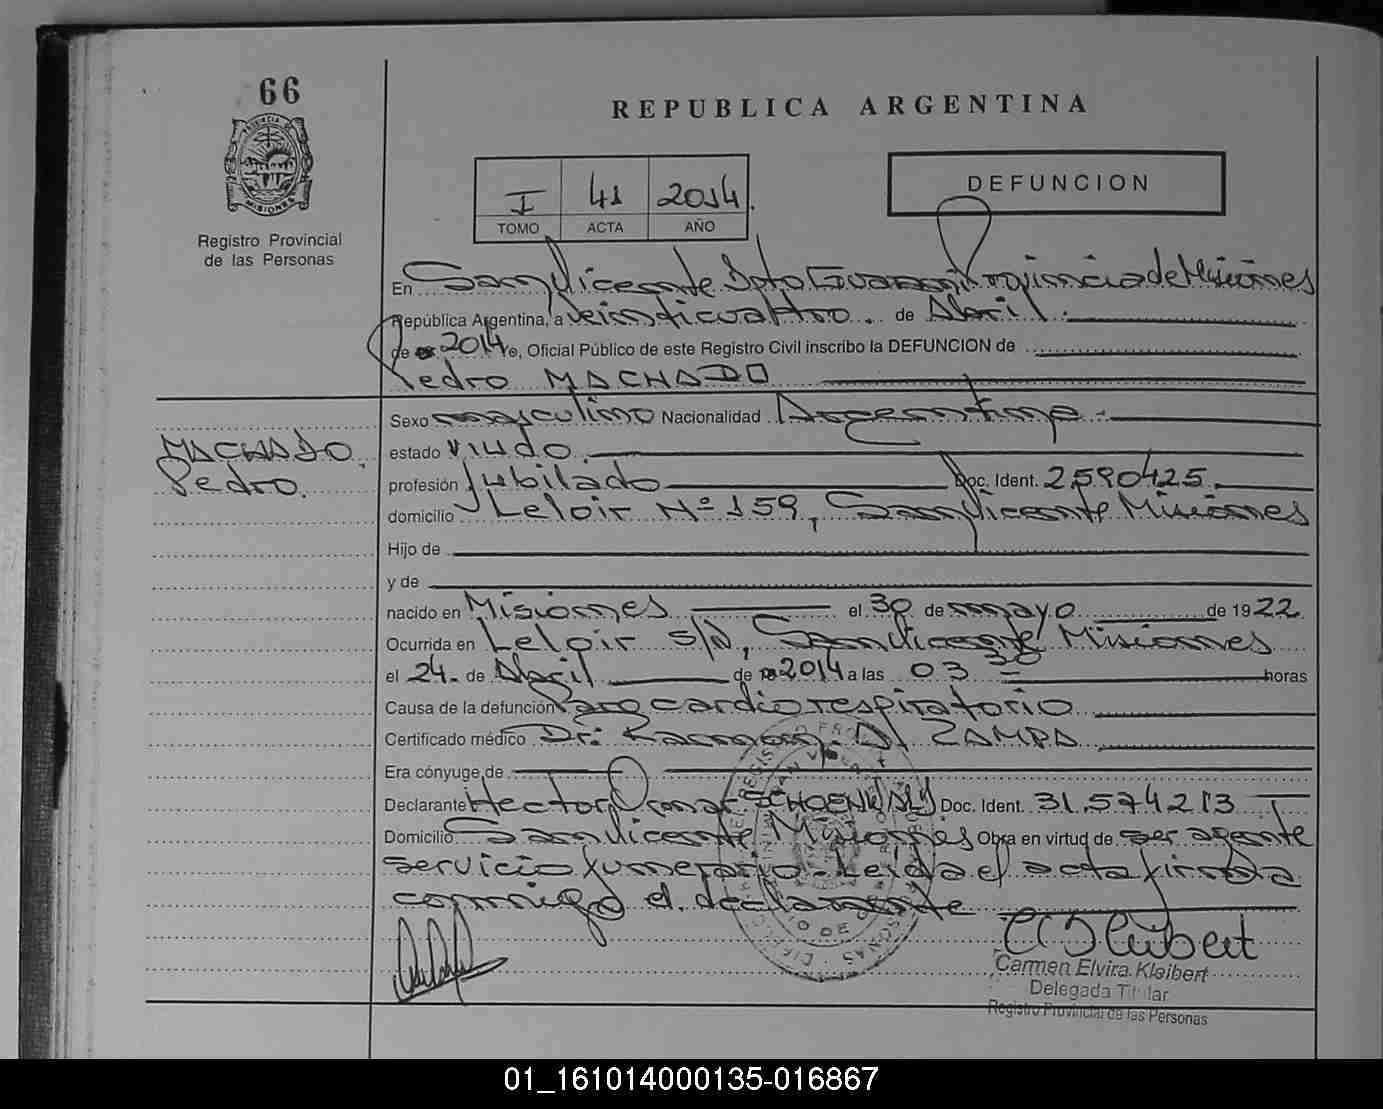 66
PROVINCIA DE
MISIONES
Registro Provincial
de las Personas
REPUBLICA ARGENTINA
I 41 2014.
TOMO ACTA AÑO
DEFUNCION
En San Vicente Dpto Guaraní Provincia de Misiones
República Argentina, a veinticuatro. de Abril.
de 2014 e, Oficial Público de este Registro Civil inscribo la DEFUNCION de
Pedro MACHADO
Sexo masculino Nacionalidad Argentina.
MACHADO,
estado viudo.
Pedro.
profesión jubilado Doc. Ident. 2.590425.
domicilio Leloir Nº 159, San Vicente Misiones
Hijo de
y de
nacido en Misiones el 30 de mayo de 1922
Ocurrida en Leloir s/N, San Vicente Misiones
el 24. de Abril de 2014 a las 03 30 horas
Causa de la defunción Paro cardiorespiratorio
Certificado médico Dr. Ramon. A. ZAMPA
Era cónyuge de
Declarante Hector Omar Doc. Ident. 31.574213
Domicilio San Vicente Misiones Obra en virtud de ser agente
servicio funerario. Leída el acta firma
conmigo el declarante
C E Kleibert
Carmen Elvira Kleibert
Delegada Titular
Registro Provincial de las Personas
01_161014000135-016867